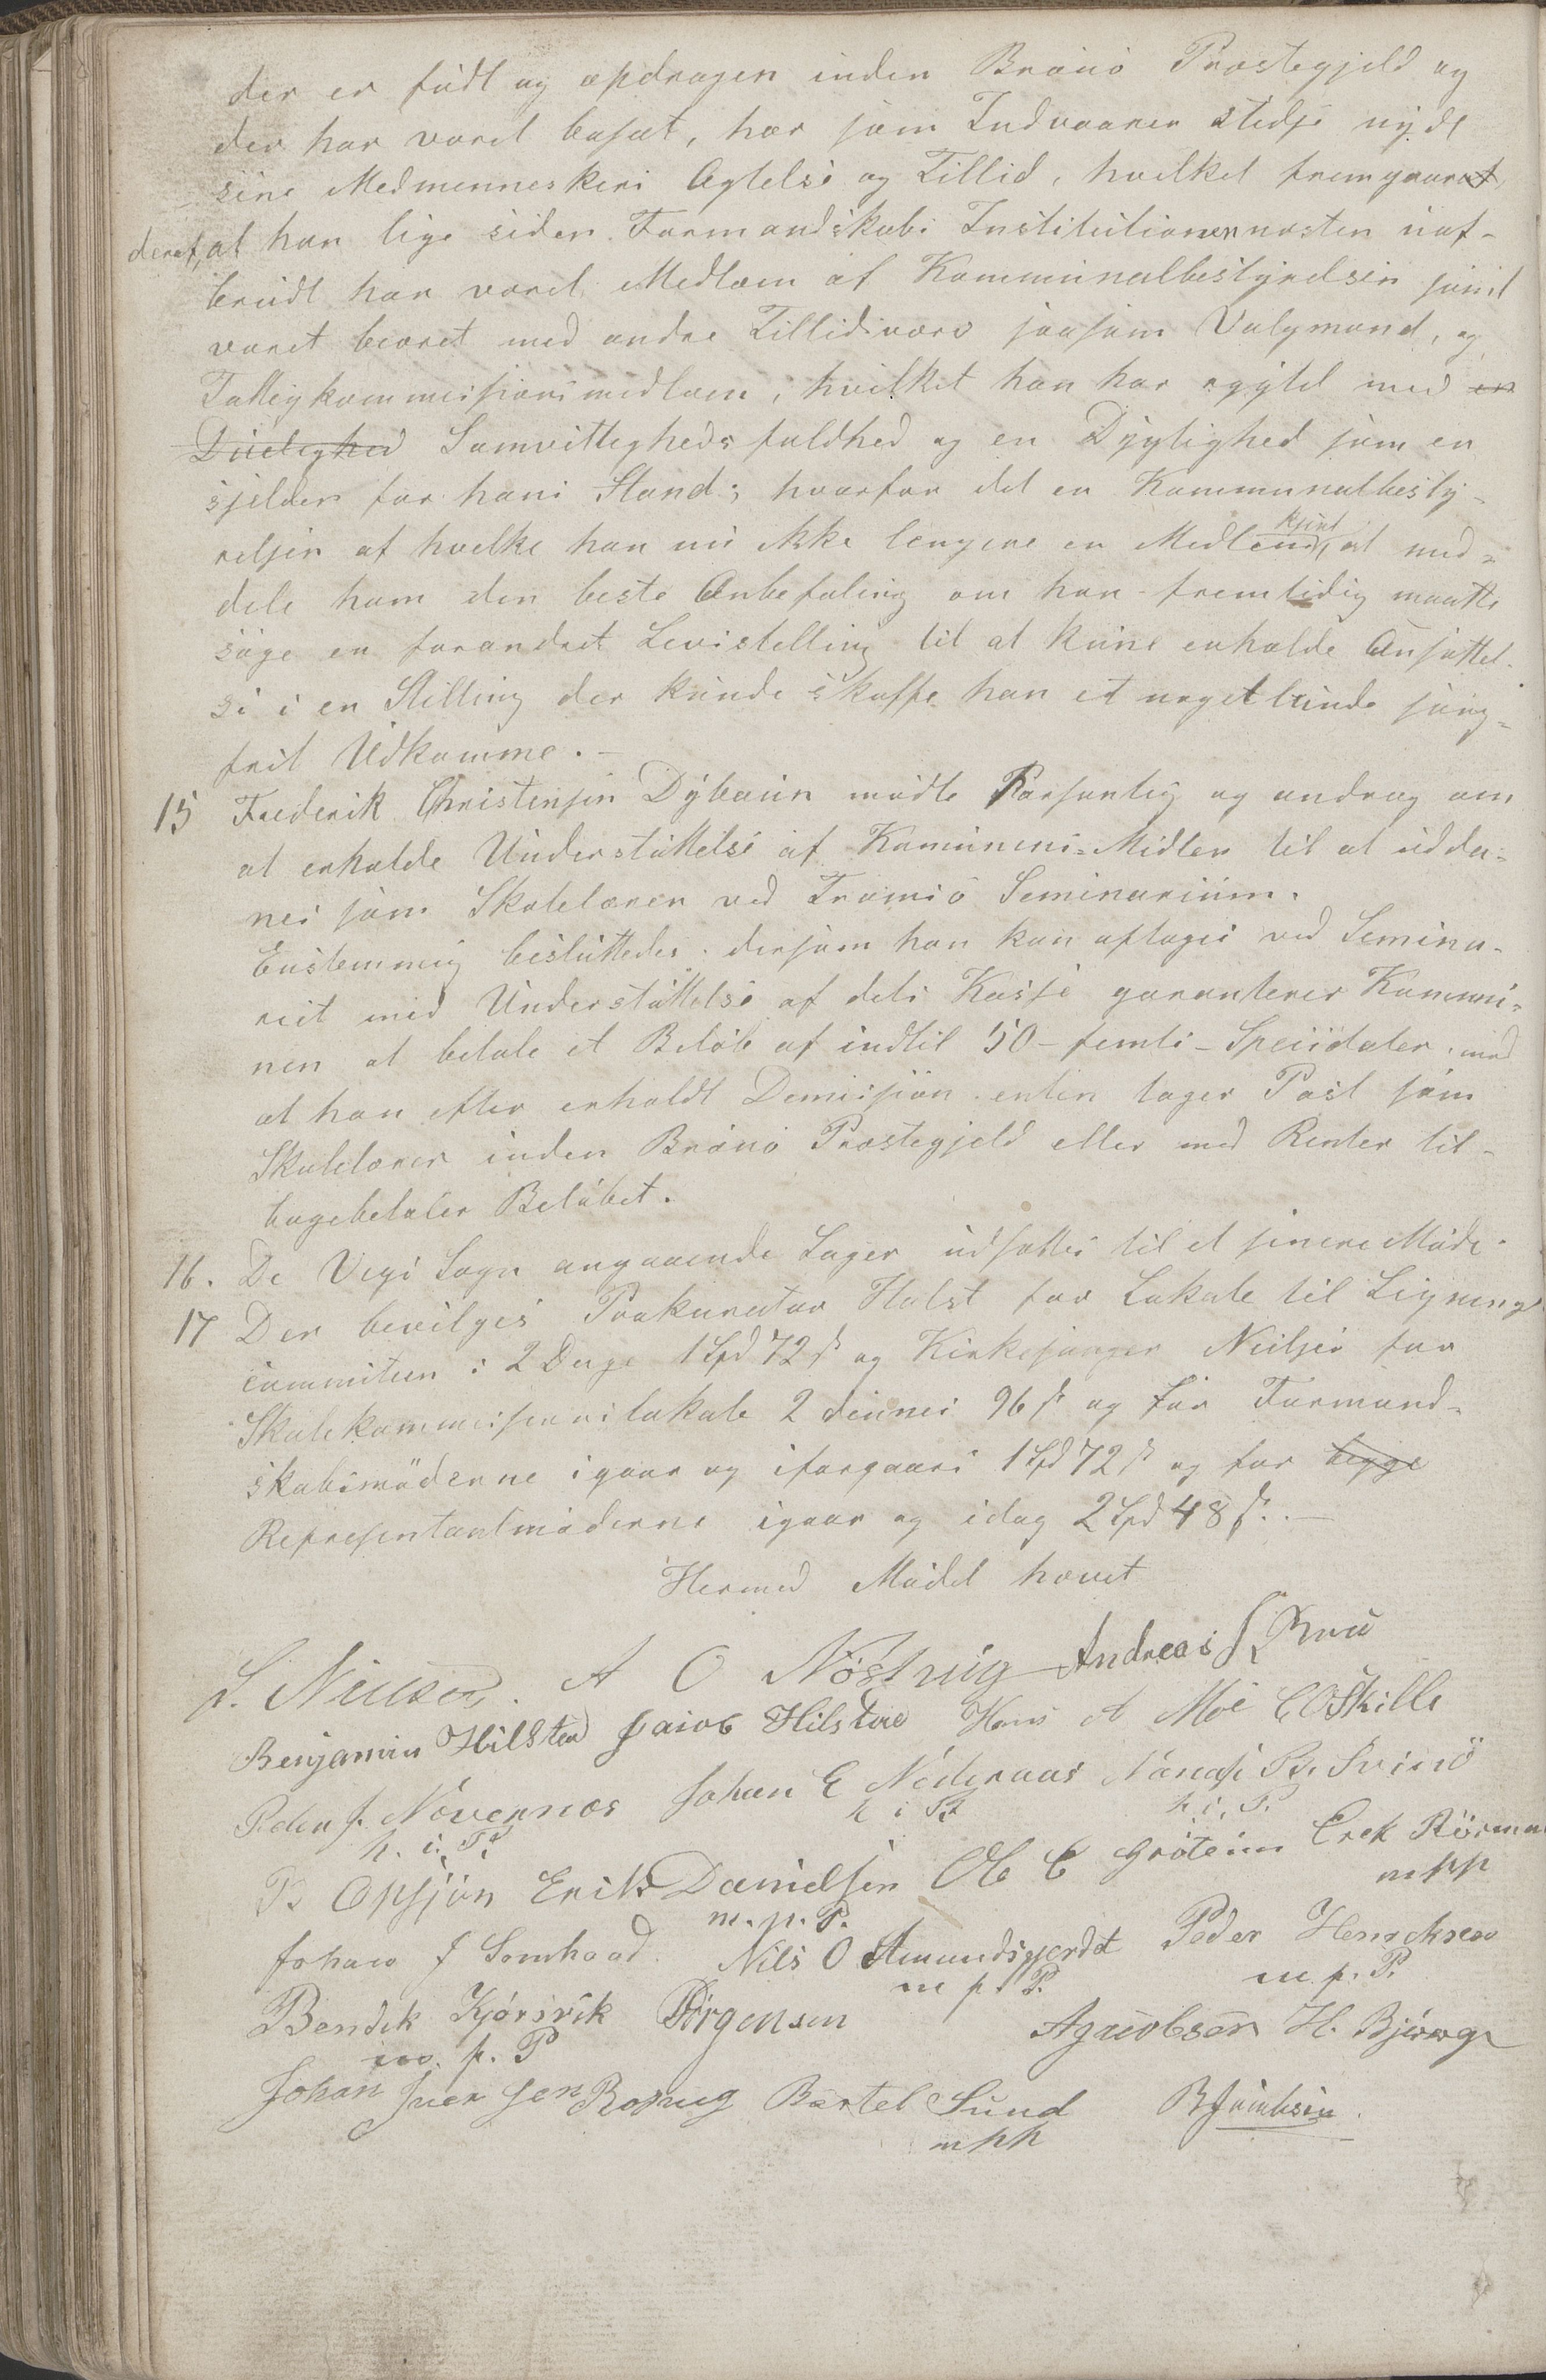 der er född og opdragen inden Brönö Præstegjeld og
der har været bosat, har som Indvaaner stedse nydt
sine Medmenneskers Agtelse og Tillid, hvilket fremgaar
deraf, at han lige siden Formandskabs Institutionen næsten uaf-
brudt har været Medlem af Kommunalbestyrelsen samt
været beæret med andre Tillidsværv saasom Valgmand, og
Fattigkommissionsmedlem, hvilket han har rygtet med en
Duelighed Samvittighedsfuldhed og en Dygtighed som er
sjelden for hans Stand; hvorfor det er Kommunalbesty-
relsen af hvilke han nu ikke længere er Medlem, kjært at med-
dele ham den beste Anbefaling om han fremtidig maatte
söge en forandret Levistelling til at kune erholde Ansættel-
se i en Stilling der kunde skaffe han et noget lunde sorg-
frit Udkomme. -
15 Frederik Christensen Dybaun mödte Personlig og androg om
at erholde Understöttelse af Kommuns-Midler til at uddan-
nes som Skolelærer ved Tromsö Seminarium.
Enstemmig besluttedes: dersom han kan optages ved Semina-
riet med Understöttelse af dets Kasse garanterer Kommu-
nen at betale et Belöb af indtil 50 - femti - Speciedaler, mod
at han efter erholdt Demission enten tager Post som
Skolelærer inden Brönö Præstegjeld eller med Renter til-
bagebetaler Belöbet.
16. De Vegö Sogn angaaende Sager udsættes til et senere Möde.
17 Der bevilges Prokurator Holst for Lokale til Lignings
commiteen i 2 Dage 1 Spd 72 ß og Kirkesanger Nielsen for
Skolekommissionslokale 2 96 ß og for Formand-
skabsmöderne igaar og iforgaars 1 Spd 72 ß og for begge
Representantmöderne igaar og idag 2 Spd 48 ß. -
Hermed Mödet hævet
S. Nielsen. A O Nöstvig Andreas J Bruu
Benjamin Hilstad Jacob Hilstad Hans A Moe C O Skille
Peder J. Növernes Johan E Nederaas B. Svinö
h. i. P. h i P h. i. P.
P Opsjön Erik Danielsen Ole C Gröteim Erek
m. p. P. mpp
Johan J Somhoad Nils O Amundsgerdet Peder Henrichsen
m p P. m. p. P.
Bendik Kjörsvik Jörgensen A Jacobsen H. Björöge
m. p. P
Johan Iversen Bortel Sund B Jacobsen.
mpp